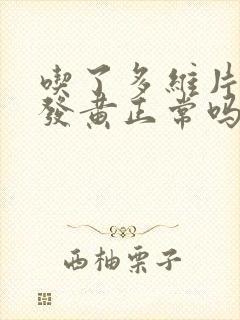 喫了多維片
發黃正常嗎
西柚栗子